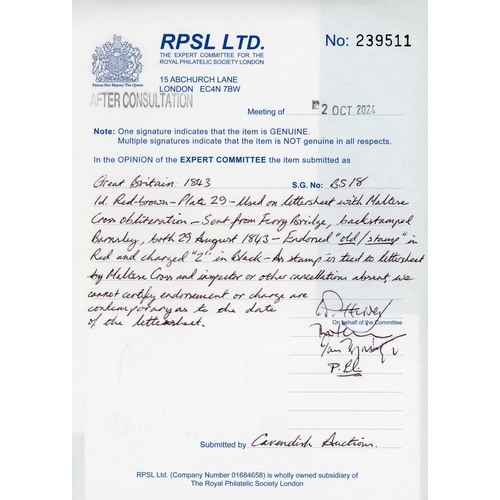 RPSL LTD.
THE EXPERT COMMITTEE FOR THE
ROYAL PHILATELIC SOCIETY LONDON
No: 239511
15 ABCHURCH LANE
LONDON EC4N 7BW
Patron Her Majesty The Queen
AFTER CONSULTATION
Meeting of 2 OCT 2024
Note: One signature indicates that the item is GENUINE.
Multiple signatures indicate that the item is NOT genuine in all respects.
In the OPINION of the EXPERT COMMITTEE the item submitted as
Great Britain: 1843 S.G. No: BS18
1d. Red-brown - Plate 29 - Used on lettersheet with Maltese
Cross obliteration - Sent from Ferry Bridge, backstamped
Barnsley, both 29 August 1843 - Endorsed "old/stamp" in
Red and charged "2" in Black - As stamp is tied to lettersheet
by Maltese Cross and inspector or other cancellations absent, we
cannot certify endorsement or charge are
contemporary as to the date
of the lettersheet.
On behalf of the Committee
Submitted by Cavendish Auctions.
RPSL Ltd. (Company Number 01684658) is wholly owned subsidiary of
The Royal Philatelic Society London